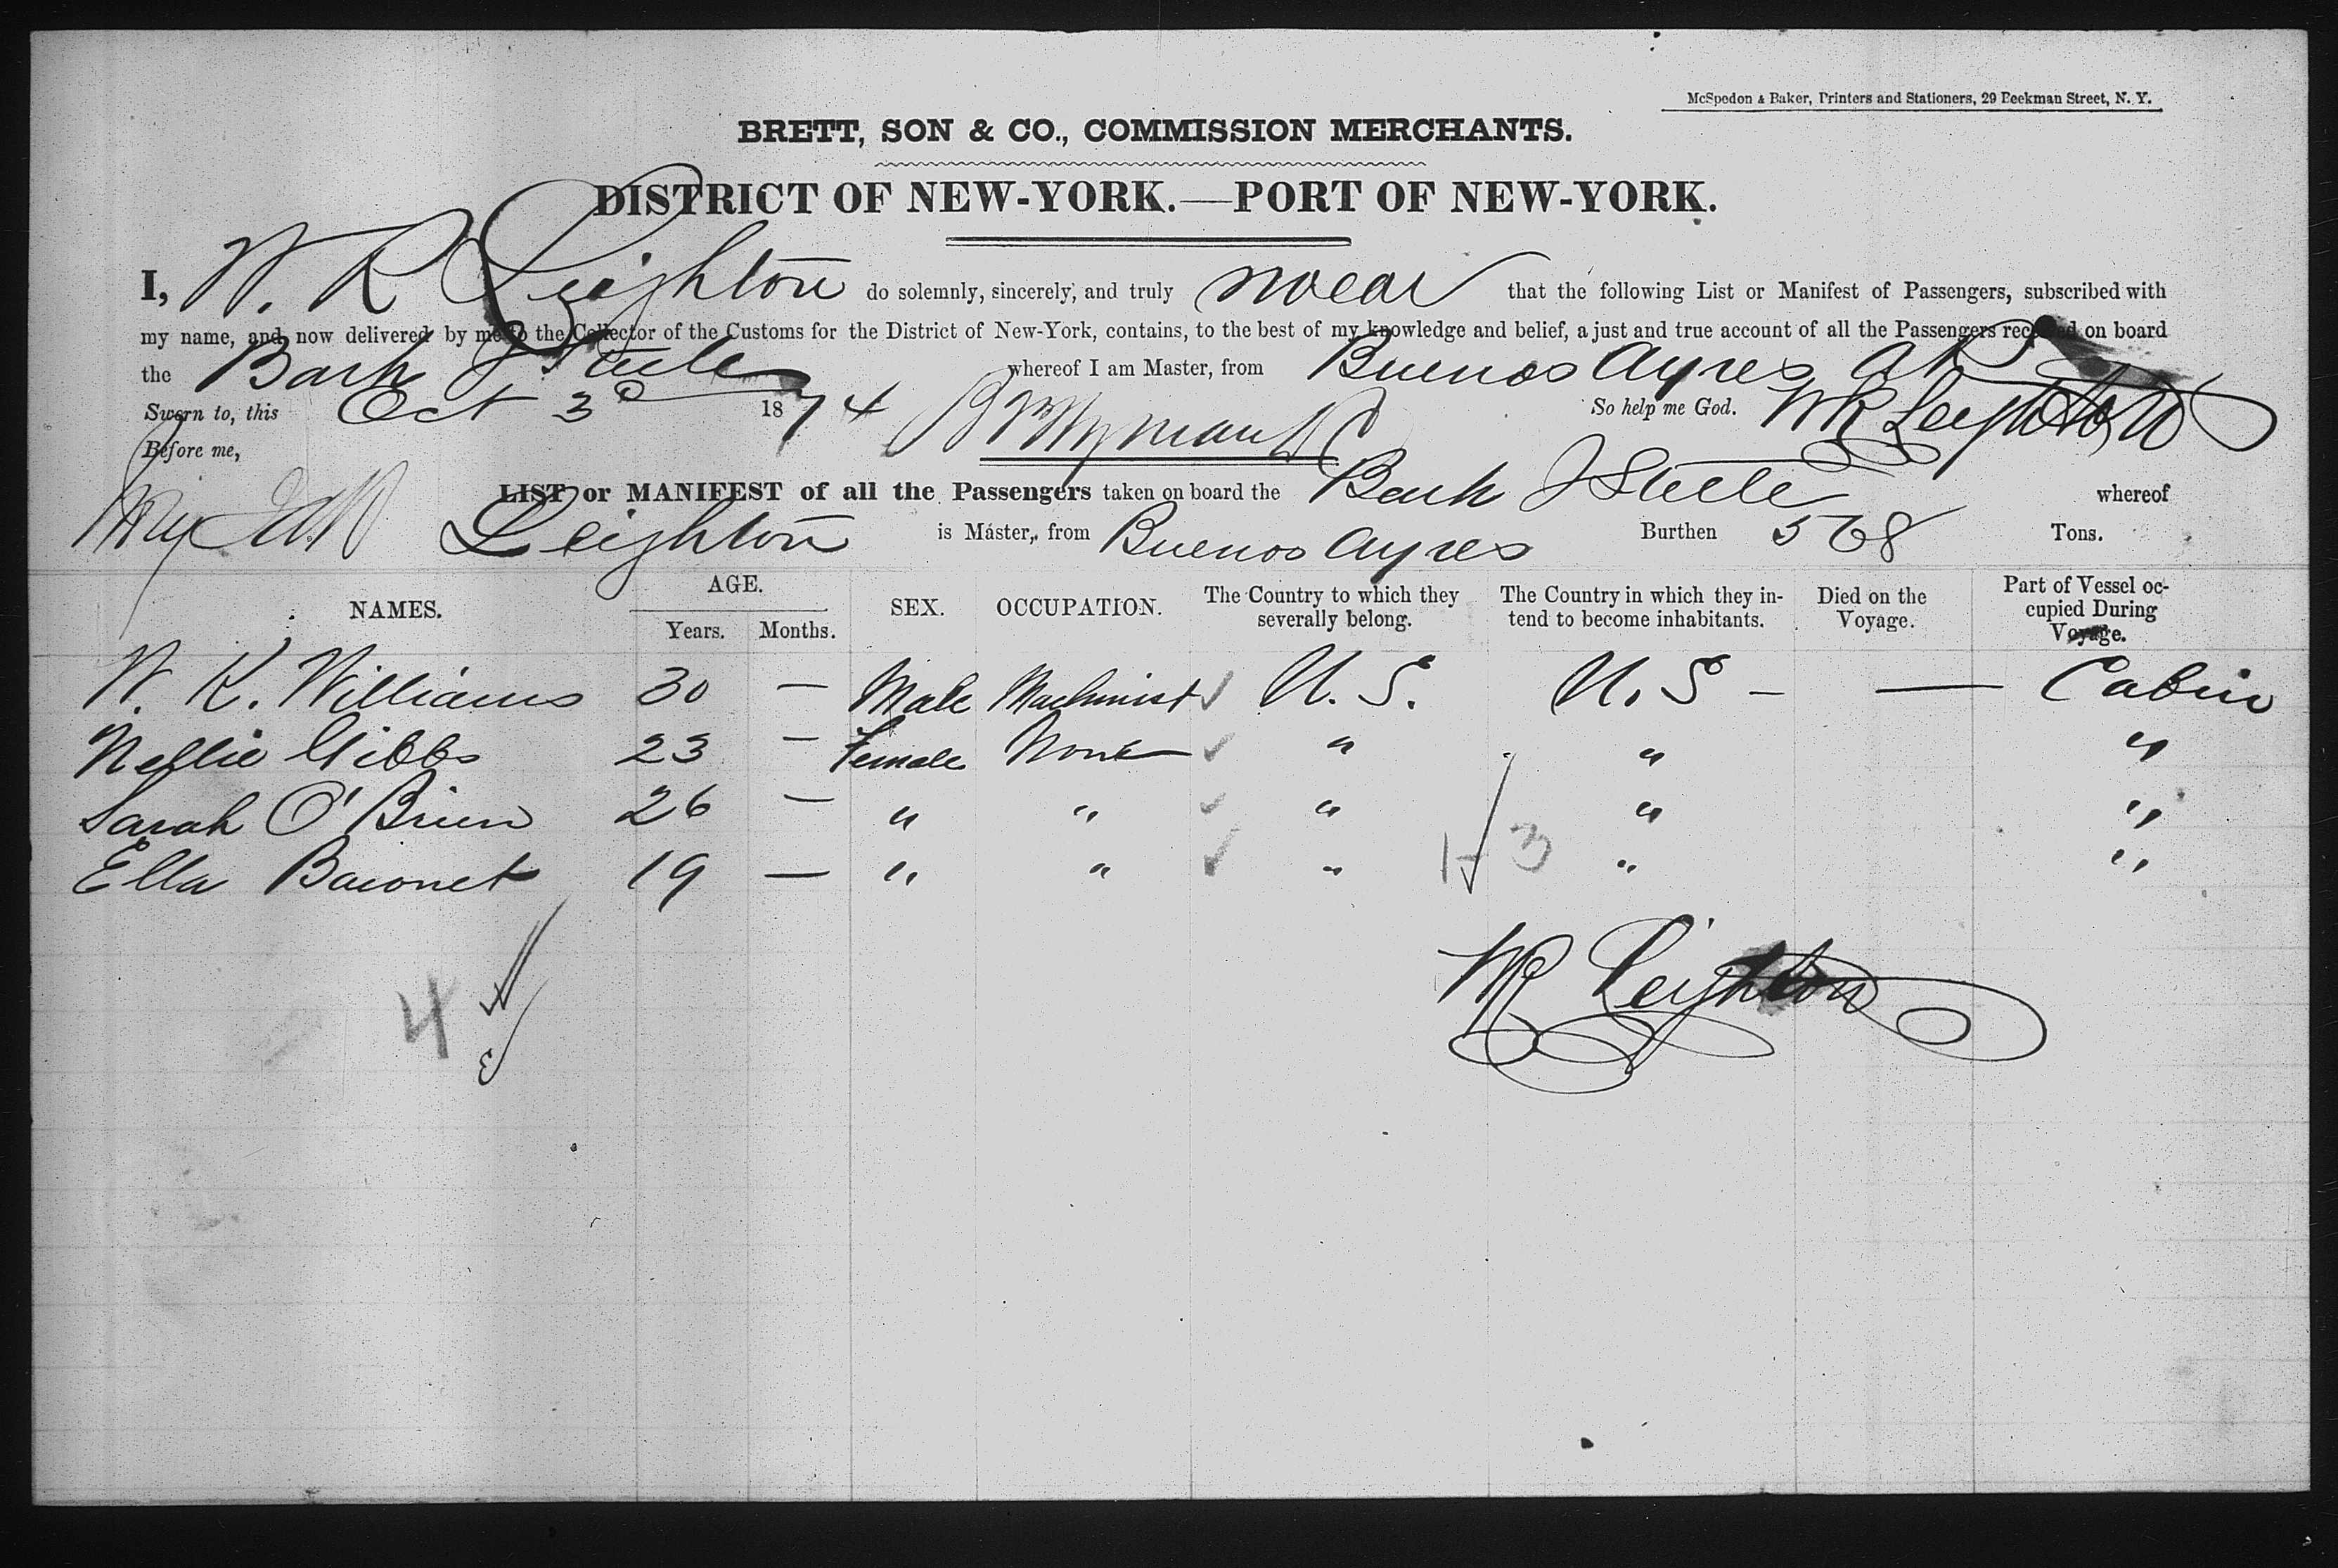 McSpedon & Baker, Printers and Stationers, 29 Beekman Street, N. Y.
BRETT, SON & CO., COMMISSION MERCHANTS.
DISTRICT OF NEW-YORK.—PORT OF NEW-YORK.
I, W. R Leighton do solemnly, sincerely, and truly swear that the following List or Manifest of Passengers, subscribed with
my name, and now delivered by me to the Collector of the Customs for the District of New-York, contains, to the best of my knowledge and belief, a just and true account of all the Passengers received on board
the Bark J Steele whereof I am Master, from Buenos Ayres
Sworn to, this Oct 3d 1874 So help me God. WR Leighton
Before me,
LIST or MANIFEST of all the Passengers taken on board the Bark J Steele whereof
Leighton is Master, from Buenos Ayres Burthen 568 Tons.
NAMES. AGE. Years. Months. SEX. OCCUPATION. The Country to which they severally belong. The Country in which they intend to become inhabitants. Died on the Voyage. Part of Vessel occupied During Voyage.
W. K. Williams 30 — Male Machinist U. S. U. S — — Cabin
Nellie Gibbs 23 — Female None " " "
Sarah O'Brien 26 — " " " " "
Ella Baronet 19 — " " " " "
1-3
WR Leighton
4